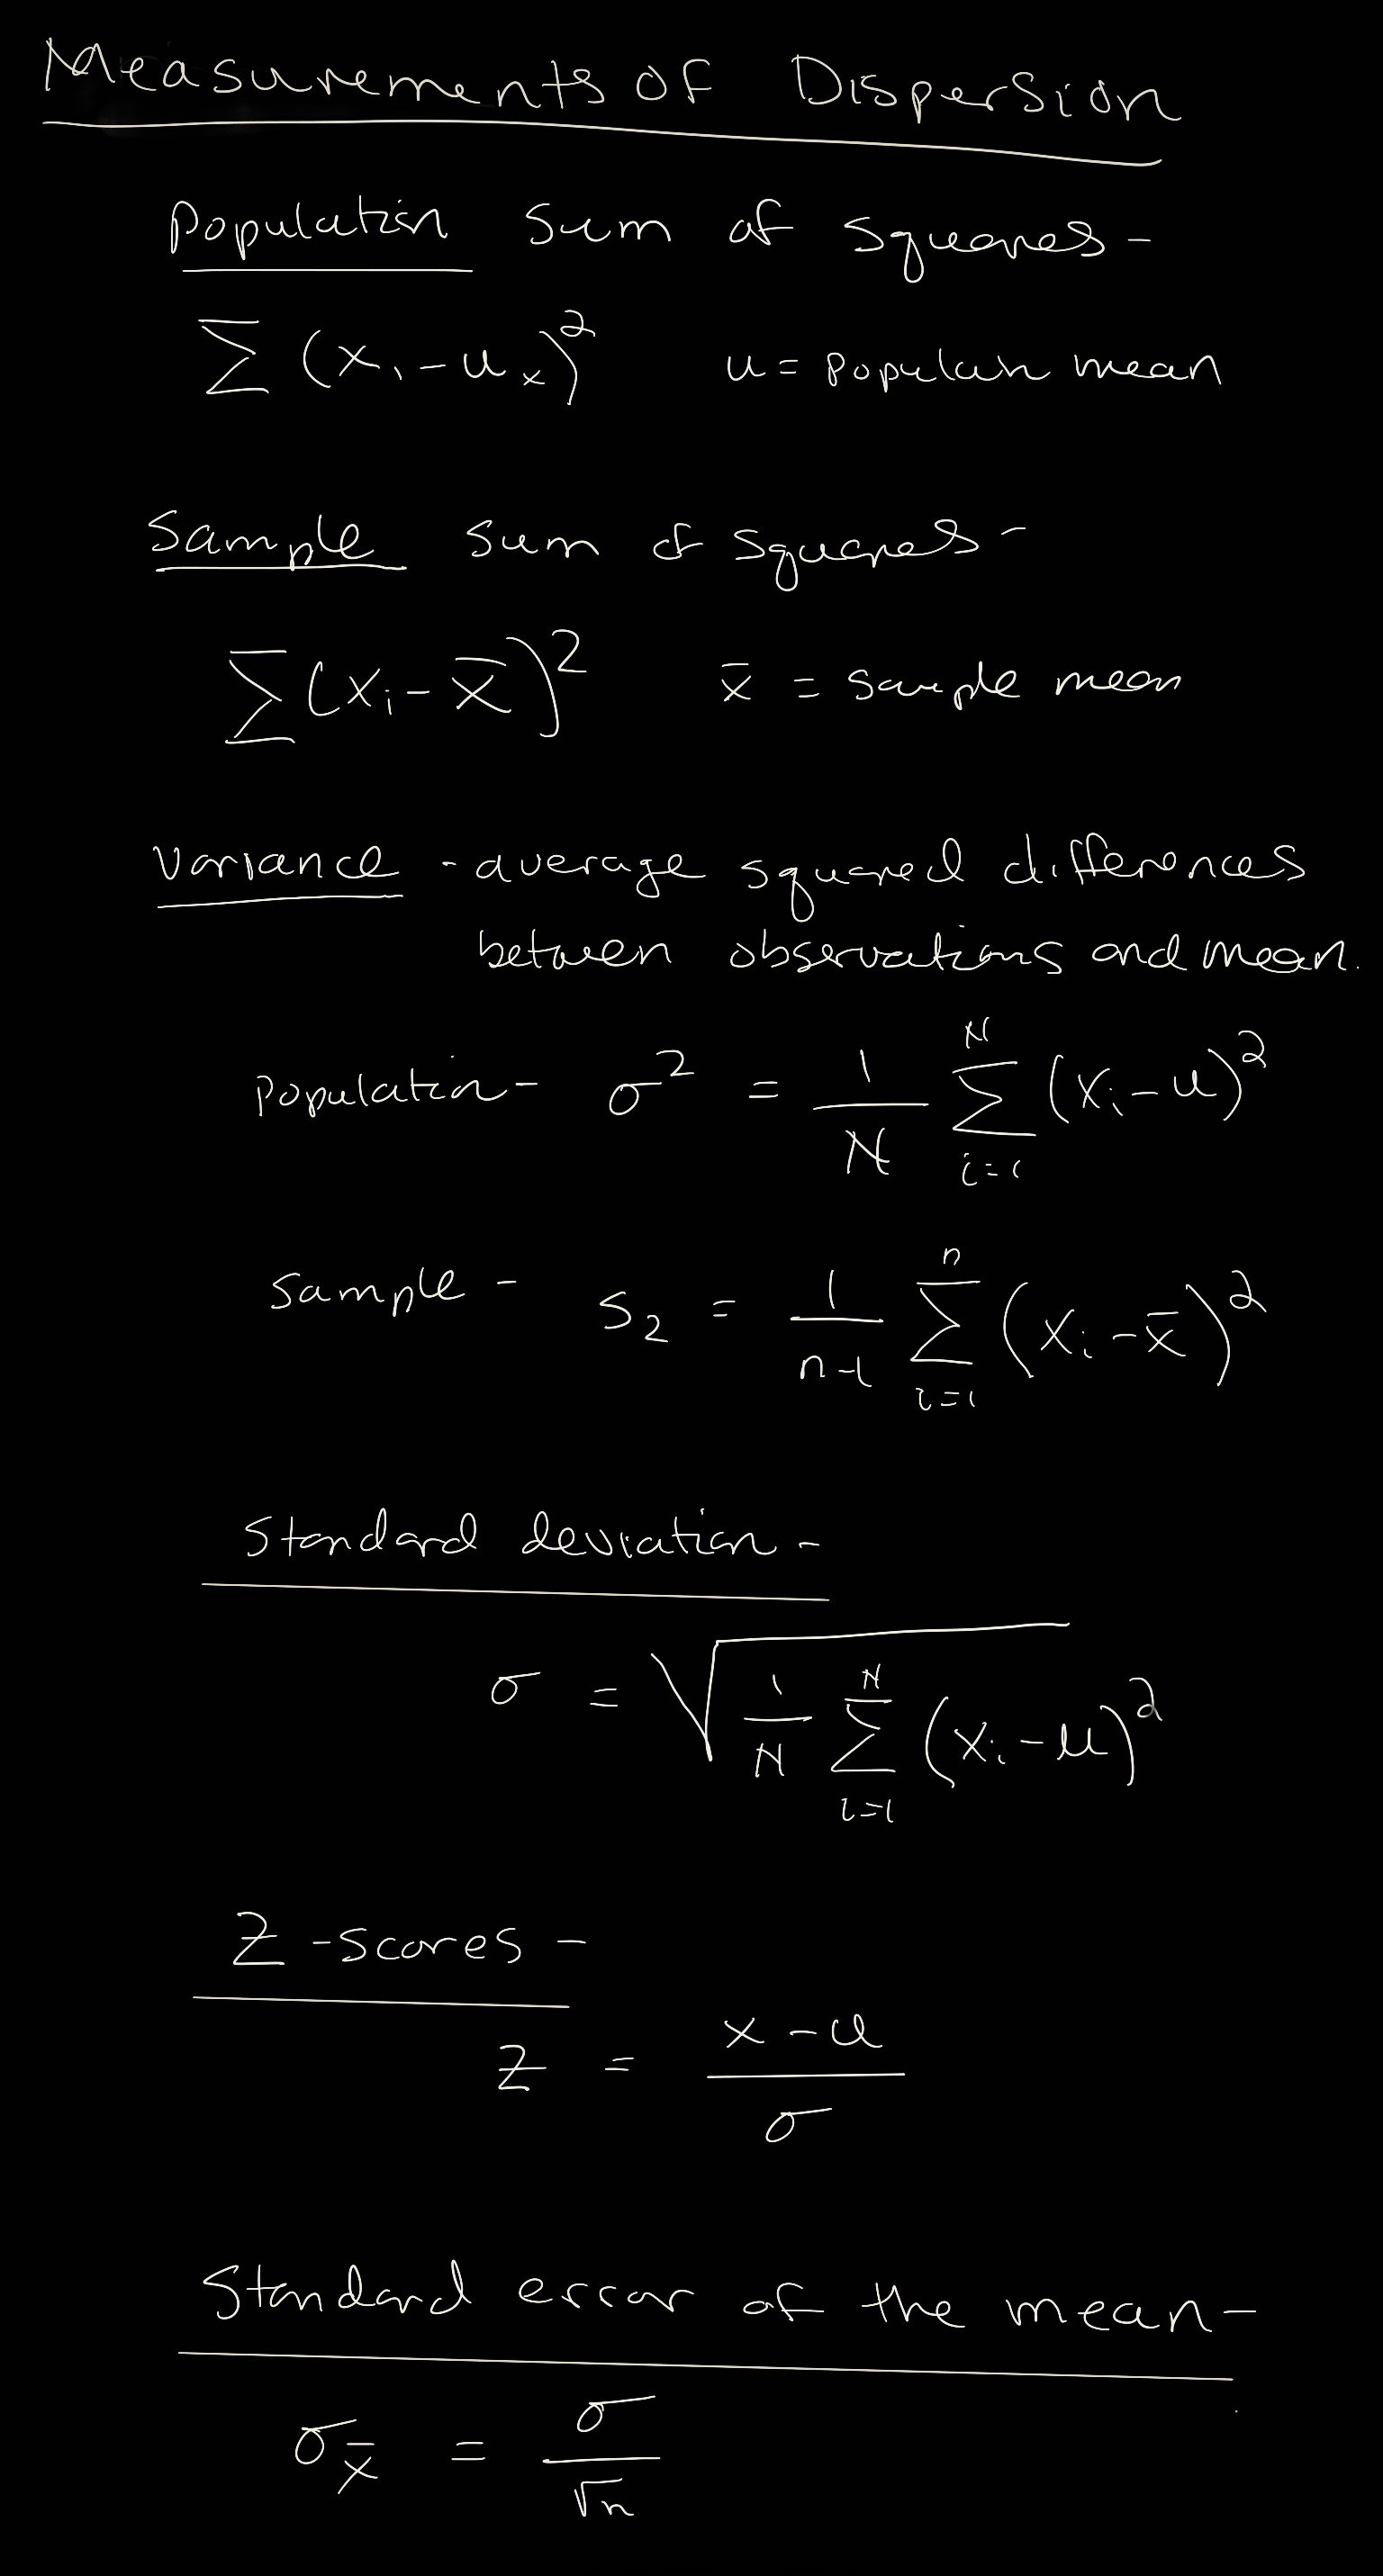 Measurements of Dispersion
Population Sum of squares -
∑ (xi - ux)² u = Population mean
Sample sum of squares -
∑(xi - x̄)² x̄ = sample mean
Variance - average squared differences
between observations and mean.
Population - σ² = 1/N ∑ i=1 N (xi - u)²
Sample - S₂ = 1/n-1 ∑ i=1 n (xi - x̄)²
Standard deviation -
σ = √ 1/N ∑ i=1 N (xi - μ)²
Z - scores -
Z = x - u / σ
Standard error of the mean -
σx̄ = σ / √n